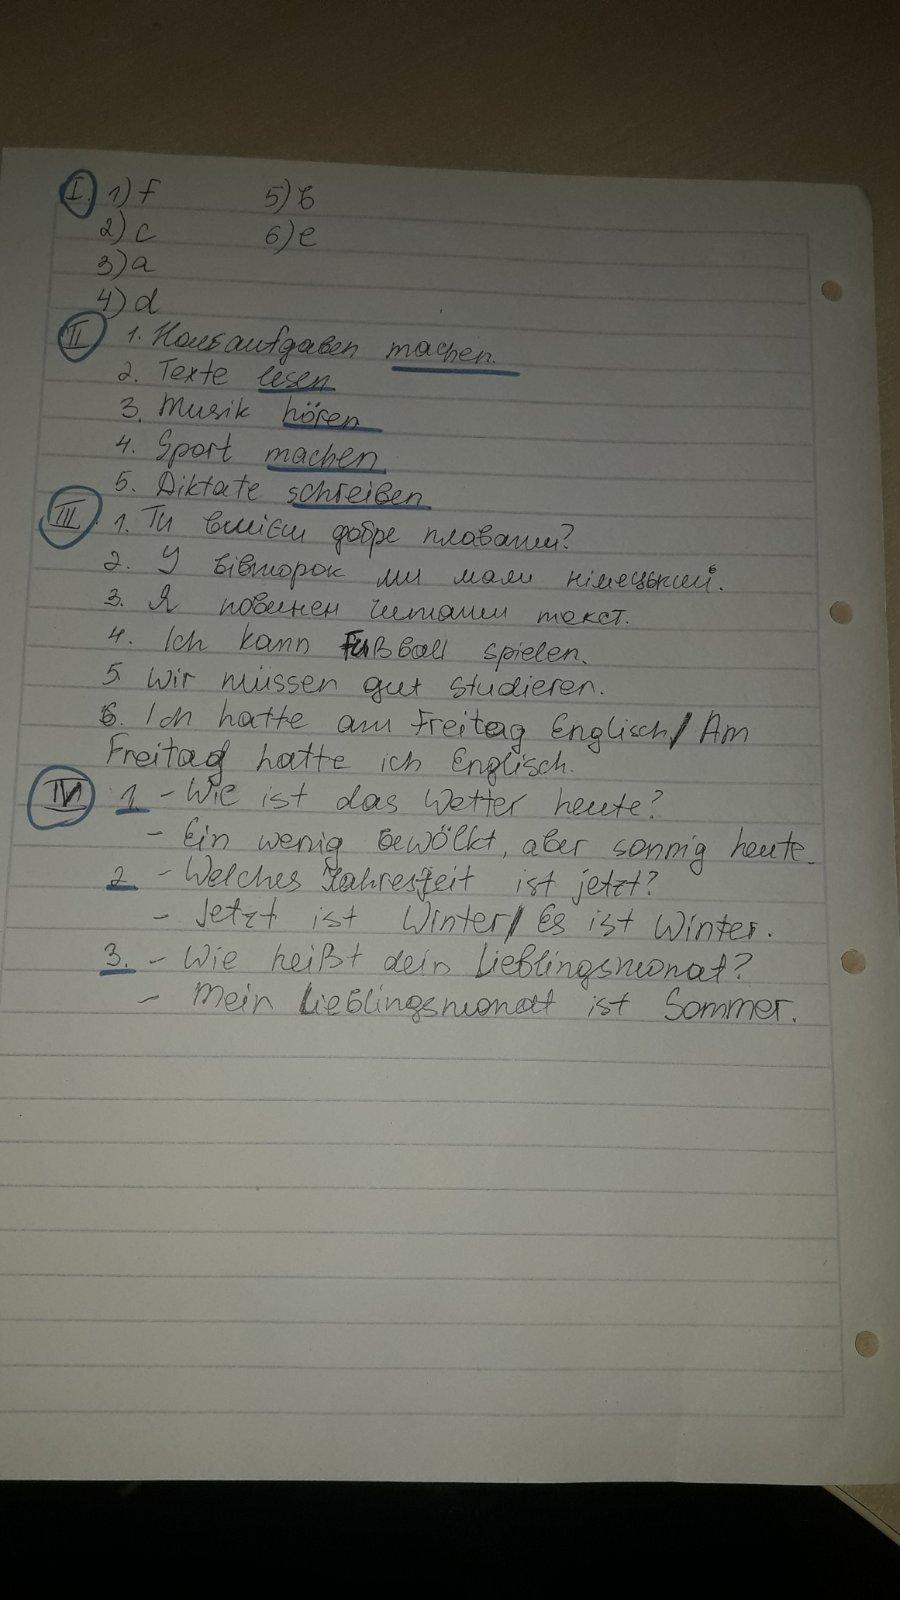 I. 1) f 5) b
2) c 6) e
3) a
4) d
II 1. Hausaufgaben machen.
2. Texte lesen
3. Musik hören
4. Sport machen
5. Diktate schreiben
III. 1. Ти вмієш добре плавати?
2. У вівторок ми мали німецький.
3. Я повинен читати текст.
4. Ich kann Fußball spielen.
5. Wir müssen gut studieren.
6. Ich hatte am Freitag Englisch/ Am
Freitag hatte ich Englisch.
IV 1 - Wie ist das Wetter heute?
- Ein wenig bewölkt, aber sonnig heute.
2 - Welches Jahreszeit ist jetzt?
- Jetzt ist Winter/ Es ist Winter.
3. - Wie heißt dein Lieblingsmonat?
- Mein Lieblingsmonat ist Sommer.